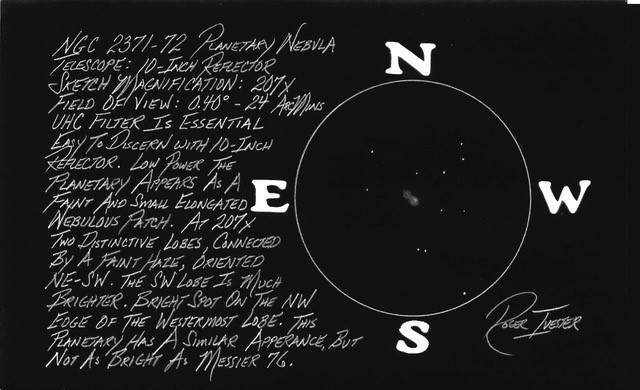 NGC 2371-72 Planetary Nebula
Telescope: 10-Inch Reflector
Sketch Magnification: 207x
Field Of View: 0.40° - 24 ArcMins
UHC Filter Is Essential
Easy To Discern with 10-Inch
Reflector. Low Power The
Planetary Appears As A
Faint And Small Elongated
Nebulous Patch. At 207x
Two Distinctive Lobes, Connected
By A Faint Haze, Oriented
NE-SW. The SW Lobe Is Much
Brighter. Bright Spot On The NW
Edge Of The Westermost Lobe. This
Planetary Has A Similar Apperance, But
Not As Bright As Messier 76.
N
E
W
S
Roger Ivester